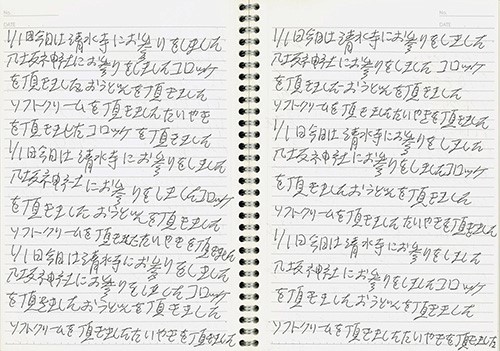 No.
DATE
1/1回今日は清水寺にお参りをしました
八坂神社にお参りをしましたコロッケ
を頂きましたおうどんを頂きました
ソフトクリームを頂きましたたいやき
を頂きましたコロッケを頂きました
1/1回今日は清水寺にお参りをしました
八坂神社にお参りをしましたコロッケ
を頂きましたおうどんを頂きました
ソフトクリームを頂きましたたいやきを頂きました
1/1回今日は清水寺にお参りをしました
八坂神社にお参りをしましたコロッケ
を頂きましたおうどんを頂きました
ソフトクリームを頂きましたたいやきを頂きました
No.
DATE
1/1回今日は清水寺にお参りをしました
八坂神社にお参りをしましたコロッケ
を頂きましたおうどんを頂きました
ソフトクリームを頂きましたたいやきを頂きました
1/1回今日は清水寺にお参りをしました
八坂神社にお参りをしましたコロッケ
を頂きましたおうどんを頂きました
ソフトクリームを頂きましたたいやきを頂きました
1/1回今日は清水寺にお参りをしました
八坂神社にお参りをしましたコロッケ
を頂きましたおうどんを頂きました
ソフトクリームを頂きましたたいやきを頂きました